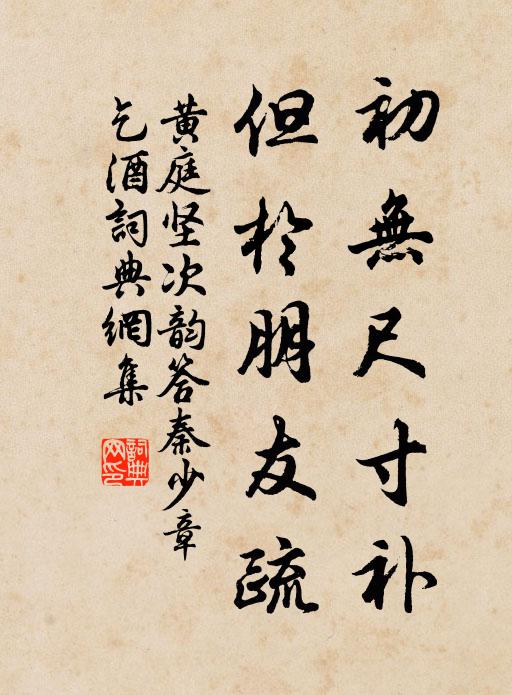 初無尺寸补
但於朋友疏
黄庭坚次韵答秦少章
乞酒詞典網集
詞典網印